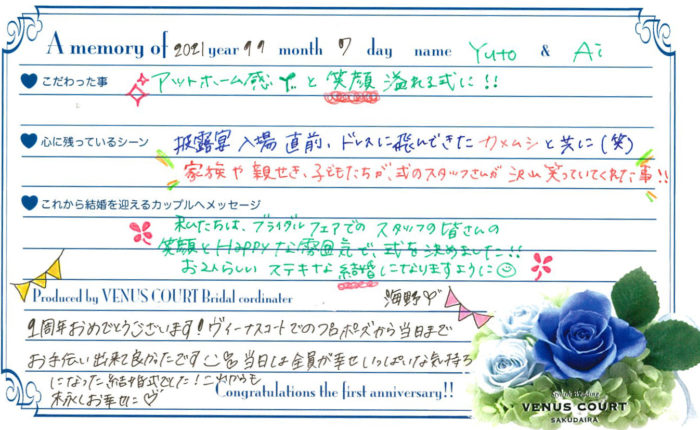 A memory of 2021 year 11 month 7 day name Yuto & Ai
こだわった事
アットホーム感と笑顔溢れる式に!!
心に残っているシーン
披露宴入場直前、ドレスに飛んできたカメムシと共に(笑)
家族や親せき、子どもたちが、式のスタッフさんが沢山笑っていてくれた事!!
これから結婚を迎えるカップルへメッセージ
私たちは、ブライダルフェアでのスタッフの皆さんの
笑顔とHappyな雰囲気で、式を決めました!!
お2人らしいステキな結婚になりますように
Produced by VENUS COURT Bridal cordinater 海野
1周年おめでとうございます!ヴィーナスコートでのプロポーズから当日まで
お手伝い出来て良かったです 当日は全員が幸せいっぱいな気持ち
になった結婚式でした!これからも
末永くお幸せに
Congratulations the first anniversary!!
VENUS COURT
SAKUDAIRA